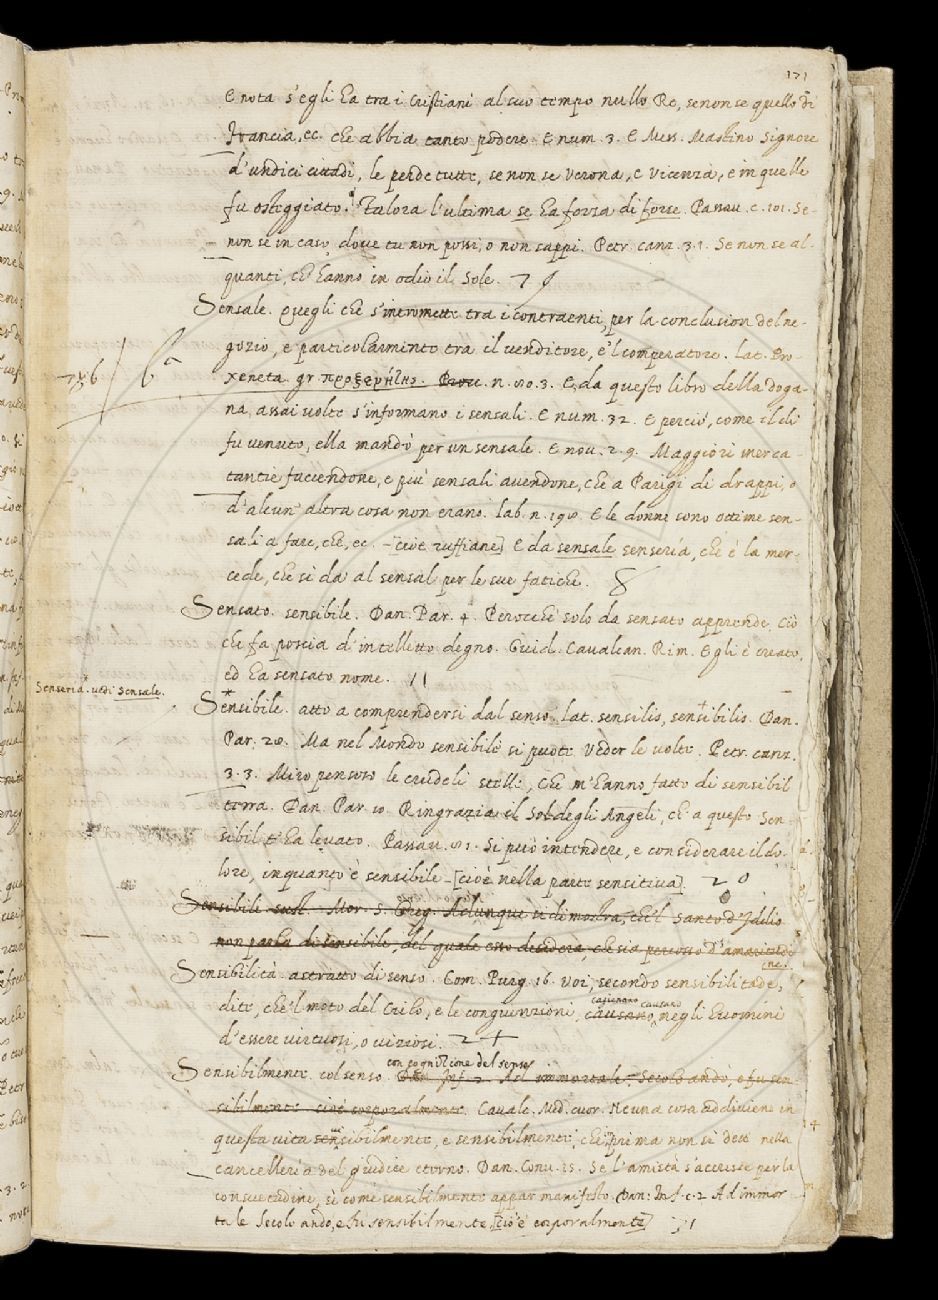 171
E nota s'egli ha tra i Cristiani al suo tempo nullo Re, se non se quello di
Francia, ec. che abbia tanto podere. E num. 3. E Mess. Mastino Signore
d'undici cittadi, le perde tutte, se non se Verona, e Vicenza, e in quelle
fu osteggiato. Talora l'ultima se ha forza di forse. Passav. c. 101. Se-
non se in caso, dove tu non possi, o non sappi. Petr. canz. 3. 1. Se non se al-
quanti, ch' hanno in odio il Sole. 79
Sensale. quegli che s'intromette tra i contraenti, per la conclusion del ne-
gozio, e particolarmente tra il venditore, e 'l comperatore. Lat. Pro-
xeneta. gr n. 80. 3. E da questo libro della doga-
na, assai volte s'informano i sensali. E num. 32. E perciò, come il dì
fu venuto, ella mandò per un sensale. E nov. 2. 9. Maggiori merca-
tantie faccendone, e più sensali avendone, che a Parigi di drappi, o
d'alcun' altra cosa non erano. Lab. n. 198. E le donne sono ottime sen-
sali a fare, che, ec. - [cioè ruffiane] E da sensale senseria, che è la mer-
cede, che si da al sensal per le sue fatiche. 8
Sensato. sensibile. Dan. Par. 4. Perocchè solo da sensato apprende. Ciò
che fa poscia d'intelletto degno. Guid. Cavalcan. Rim. Egli è creato,
ed ha sensato nome. 11
Senseria. vedi sensale.
Sensibile. atto a comprendersi dal senso. Lat. sensilis, sensibilis. Dan.
Par. 28. Ma nel Mondo sensibile si puote Veder le volte. Petr. canz.
3. 3. Miro pensoso le crudeli stelle, Che m'hanno fatto di sensibil
terra. Dan. Par. 10. Ringrazia il Sol degli Angeli, ch' a questo Sen-
sibil t'ha levato. Passav. 81. Si può intendere, e considerare il do-
lore, inquanto è sensibile - [cioè nella parte sensitiva]. 20
Sensibile sust. Mor. S. Greg. Adunque si dimostra, che 'l santo d'Idilio
non parla di sensibile del quale esso desidera, che sia percosso d'amaritudi
ne.
Sensibilità. astratto di senso. Com. Purg. 16. Voi, secondo sensibilitade,
dite, che 'l moto del Cielo, e le congiunzioni, causano, negli huomini
cagionano causano
d'essere virtuosi, o viziosi. 24
con cognizione del senso
Sensibilmente. col senso. Dan. Inf. 2. Ad immortale. Secolo andò, e fu sen-
sibilmente cioè corporalmente. Cavalc. Med. cuor. Neuna cosa addiviene in
questa vita sensibilmente, e sensibilmente, che prima non si detti nella
cancelleria del giudice eterno. Dan. Conv. 25. Se l'amistà s'accresce per la
consuetudine, sì come sensibilmente appar manifesto. Dan. Inf. c. 2 Ad immor
tale Secolo andò, e fu sensibilmente, [cioè corporalmente] 31